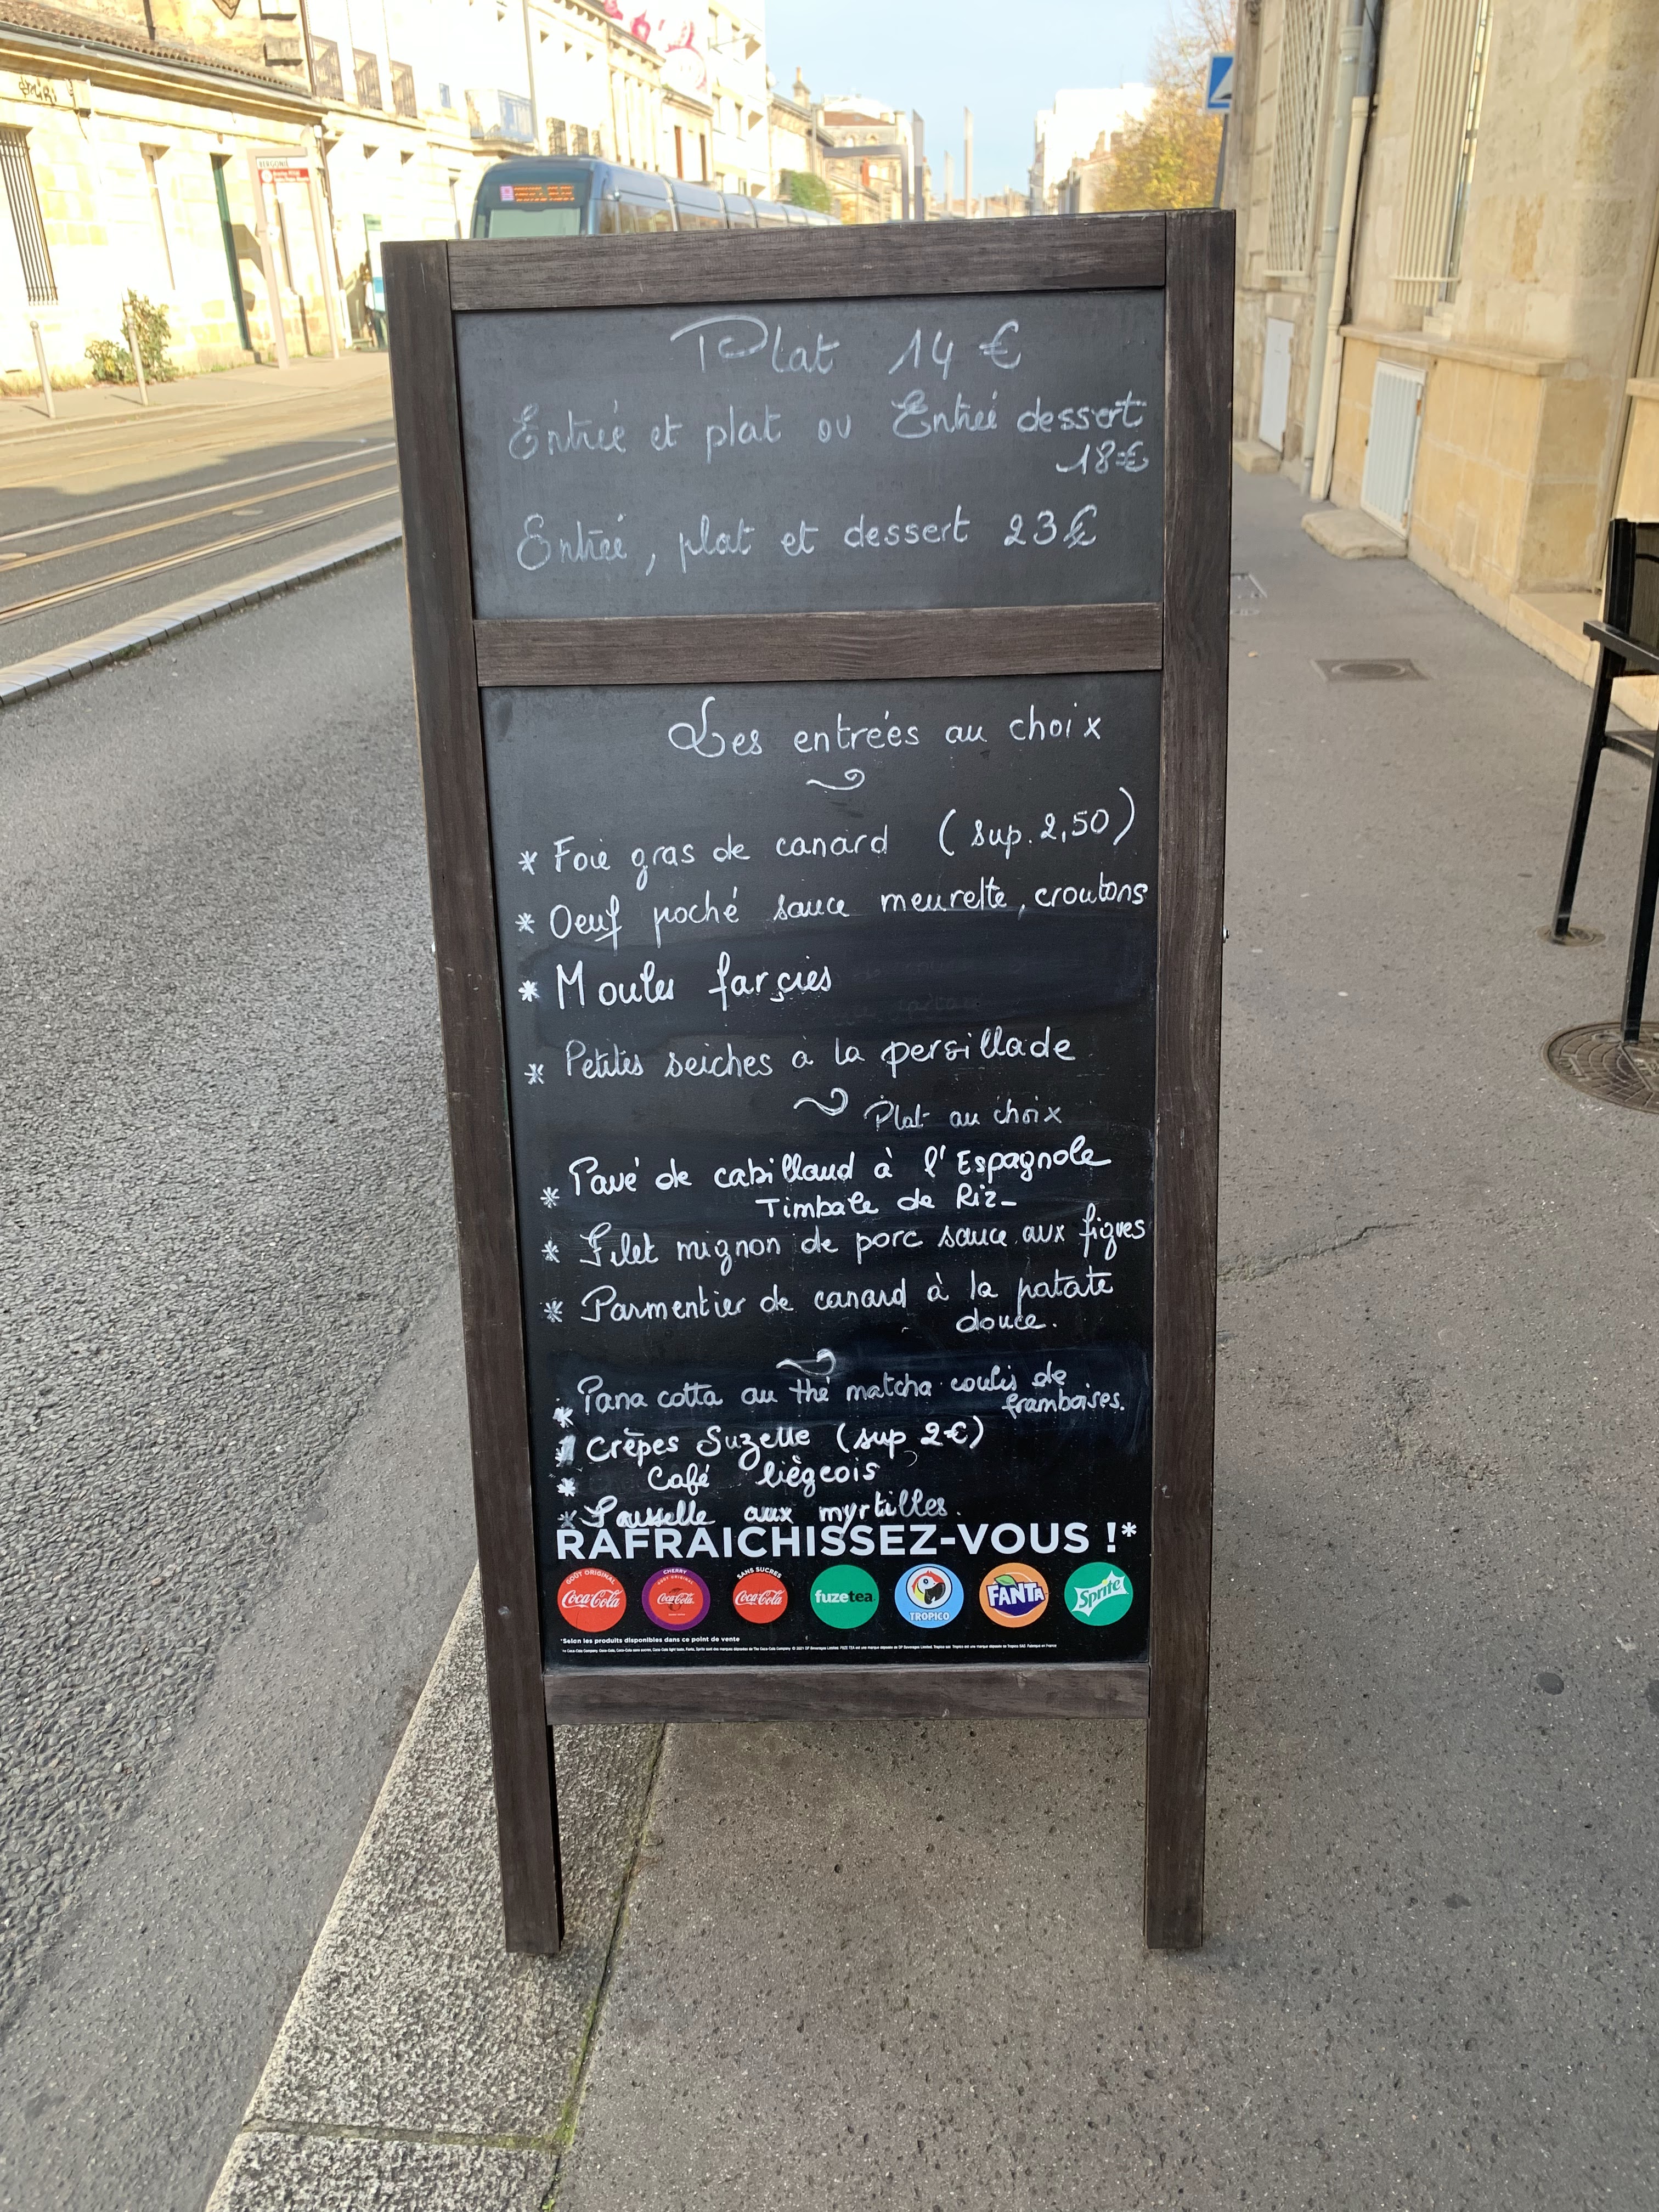 BERGONIÉ
Plat 14 €
Entrée et plat ou Entrée dessert
18€
Entrée, plat et dessert 23€
Les entrées au choix
* Foie gras de canard (sup. 2,50)
* Oeuf poché sauce meurette, croutons
* Moules farçies
* Petites seiches à la persillade
Plat au choix
* Pavé de cabillaud à l'Espagnole
Timbale de Riz_
* Filet mignon de porc sauce aux figues
* Parmentier de canard à la patate
douce.
* Pana cotta au thé matcha coulis de
framboises.
* Crêpes Suzette (sup 2€)
* Café liègeois
* Fausselle aux myrtilles.
RAFRAICHISSEZ-VOUS !*
GOÛT ORIGINAL
Coca-Cola
CHERRY
GOÛT ORIGINAL
Coca-Cola
SANS SUCRES
Coca-Cola
fuzetea
TROPICO
FANTA
Sprite
*Selon les produits disponibles dans ce point de vente